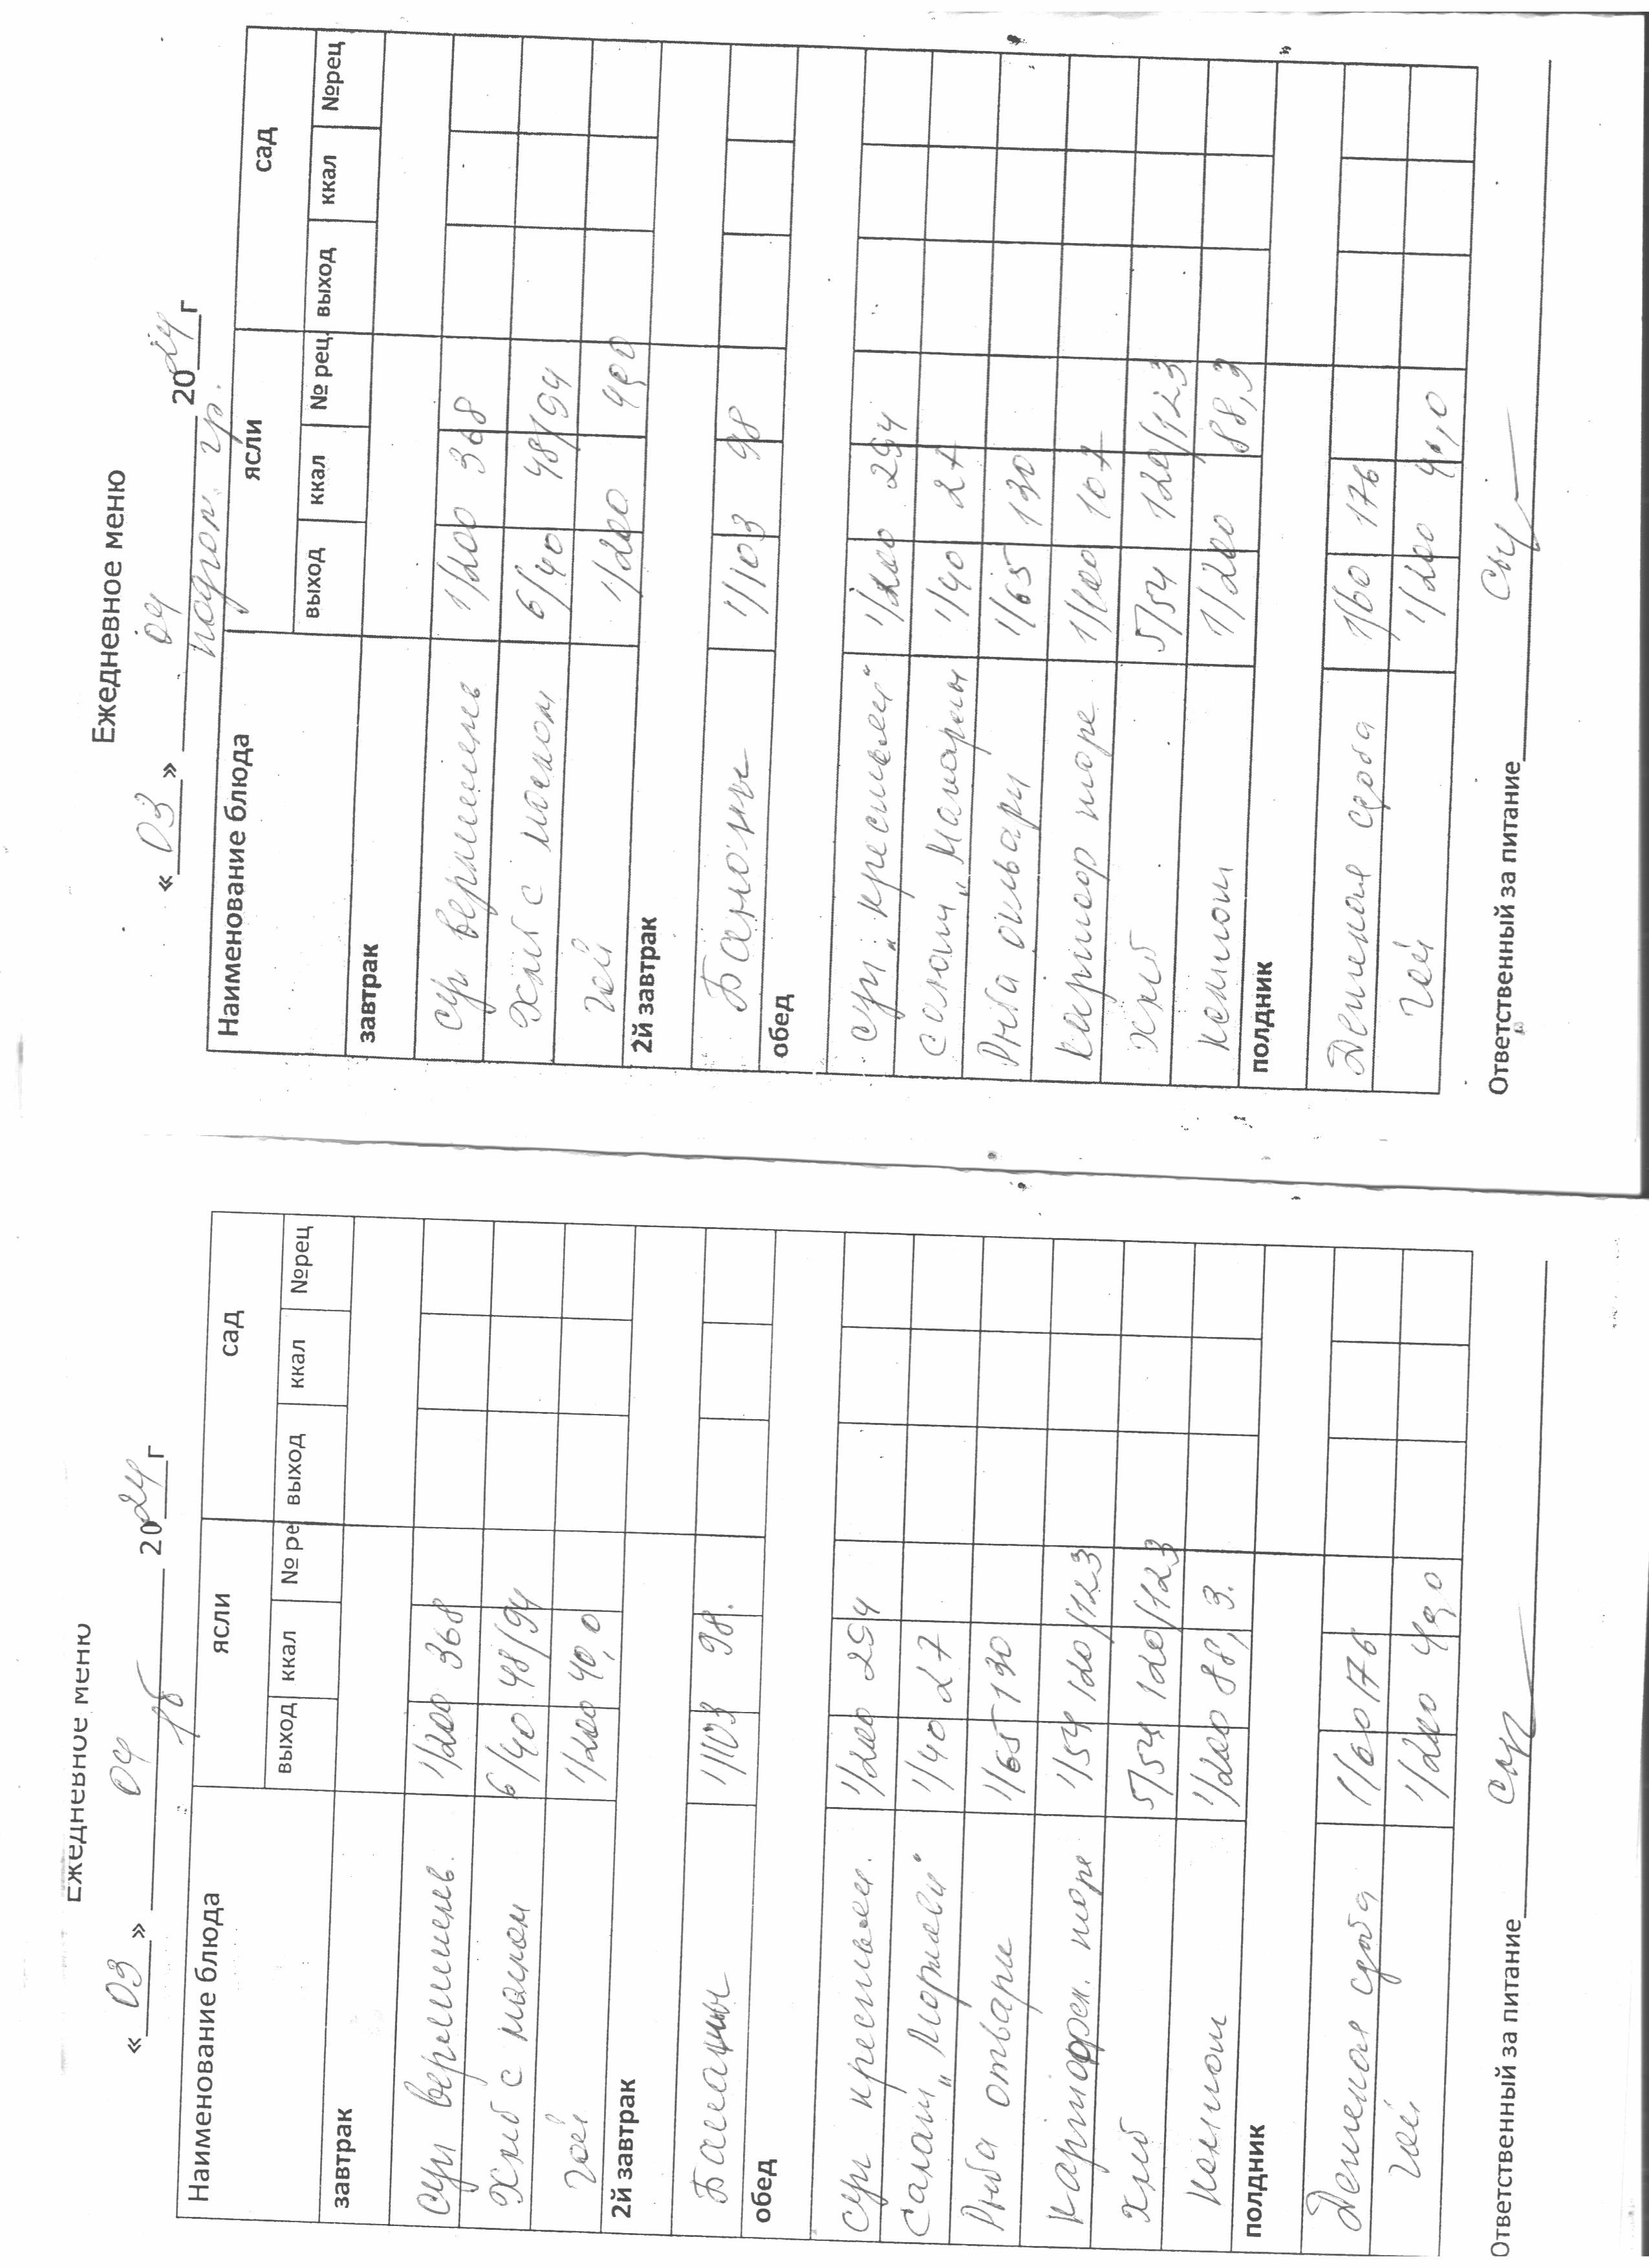 Ежедневное меню
« 03 » 04 2024 г
Наименование блюда ясли сад
выход ккал № ре выход ккал №рец
завтрак
Суп вермишель 1/200 368
Хлеб с маслом 6/40 48/94
Чай 1/200 40,0
2й завтрак
Бананы 1/103 98.
обед
Суп крестьян. 1/200 254
Салат „ 1/40 27
Рыба отварн 1/65 130
Картофел. пюре 1/54 120/123
Хлеб 5/54 120/123
Компот 1/200 88,3.
полдник
Детская сдоба 1/60 176
Чай 1/200 40,0
Ответственный за питание
Ежедневное меню
« 03 » 04 2024 г
гр.
Наименование блюда ясли сад
выход ккал № рец. выход ккал №рец
завтрак
Суп вермишель 1/200 368
Хлеб с маслом 6/40 48/94
Чай 1/200
2й завтрак
Бананы 1/103 98
обед
Суп „крестьян“ 1/200 254
Салат „ 1/40 27
Рыба отварн 1/65 130
Картоф пюре 1/100 107
Хлеб 5/54 120/123
Компот 1/200 88,3
полдник
Детская сдоба 1/60 176
Чай 1/200 40,0
Ответственный за питание